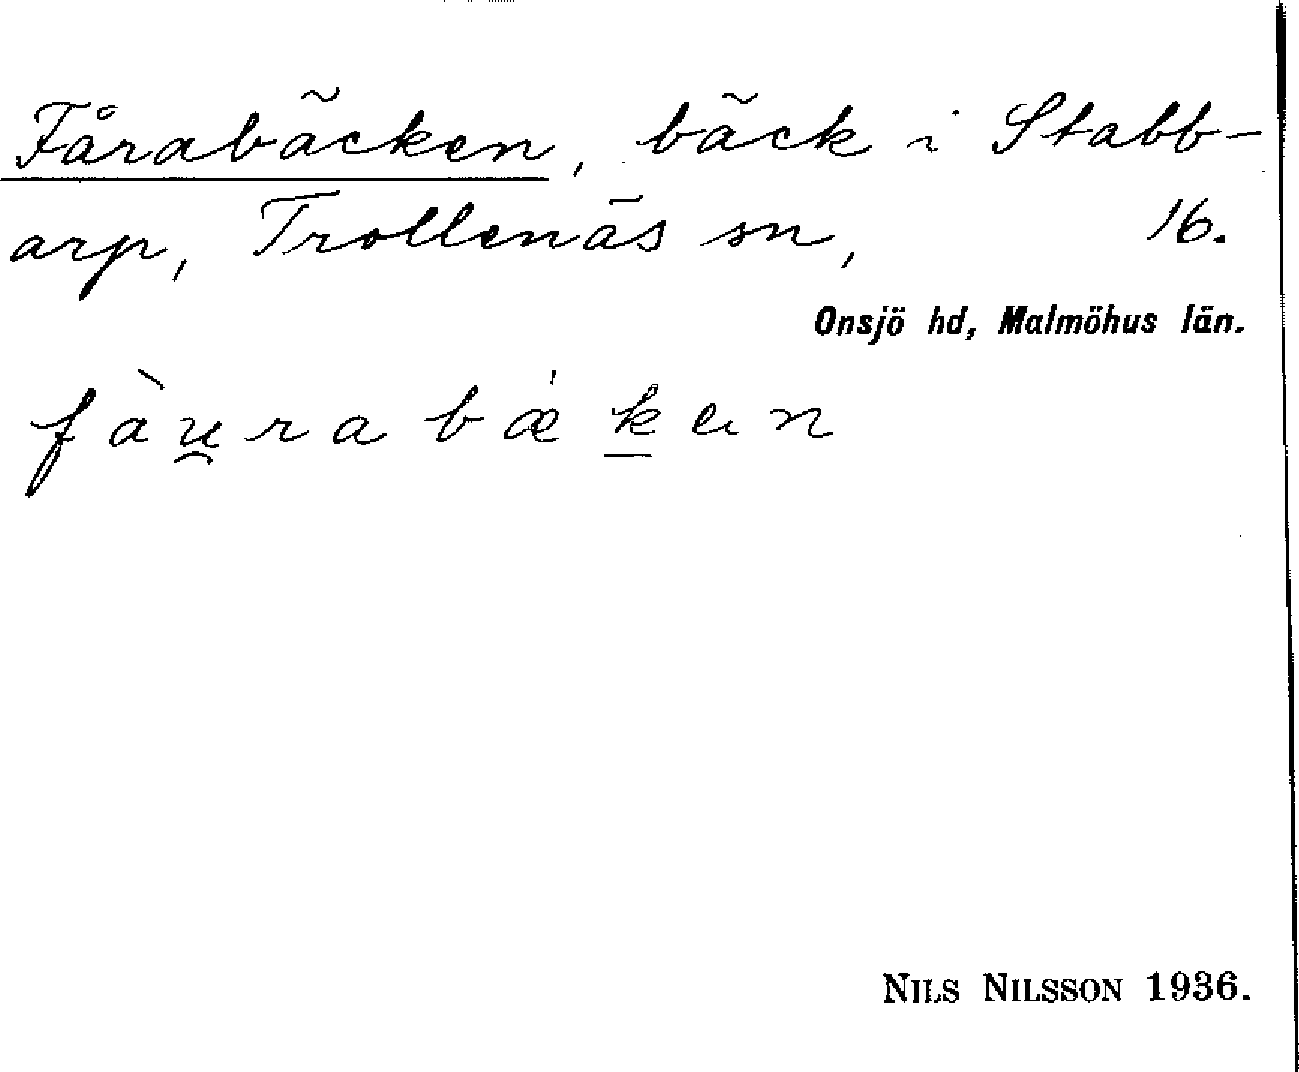 Fårabäcken, bäck i Stabb-
arp, Trollenäs sn, 16.
Onsjö hd, Malmöhus län.
fàu̯rabǽk̲en
NILS NILSSON 1936.